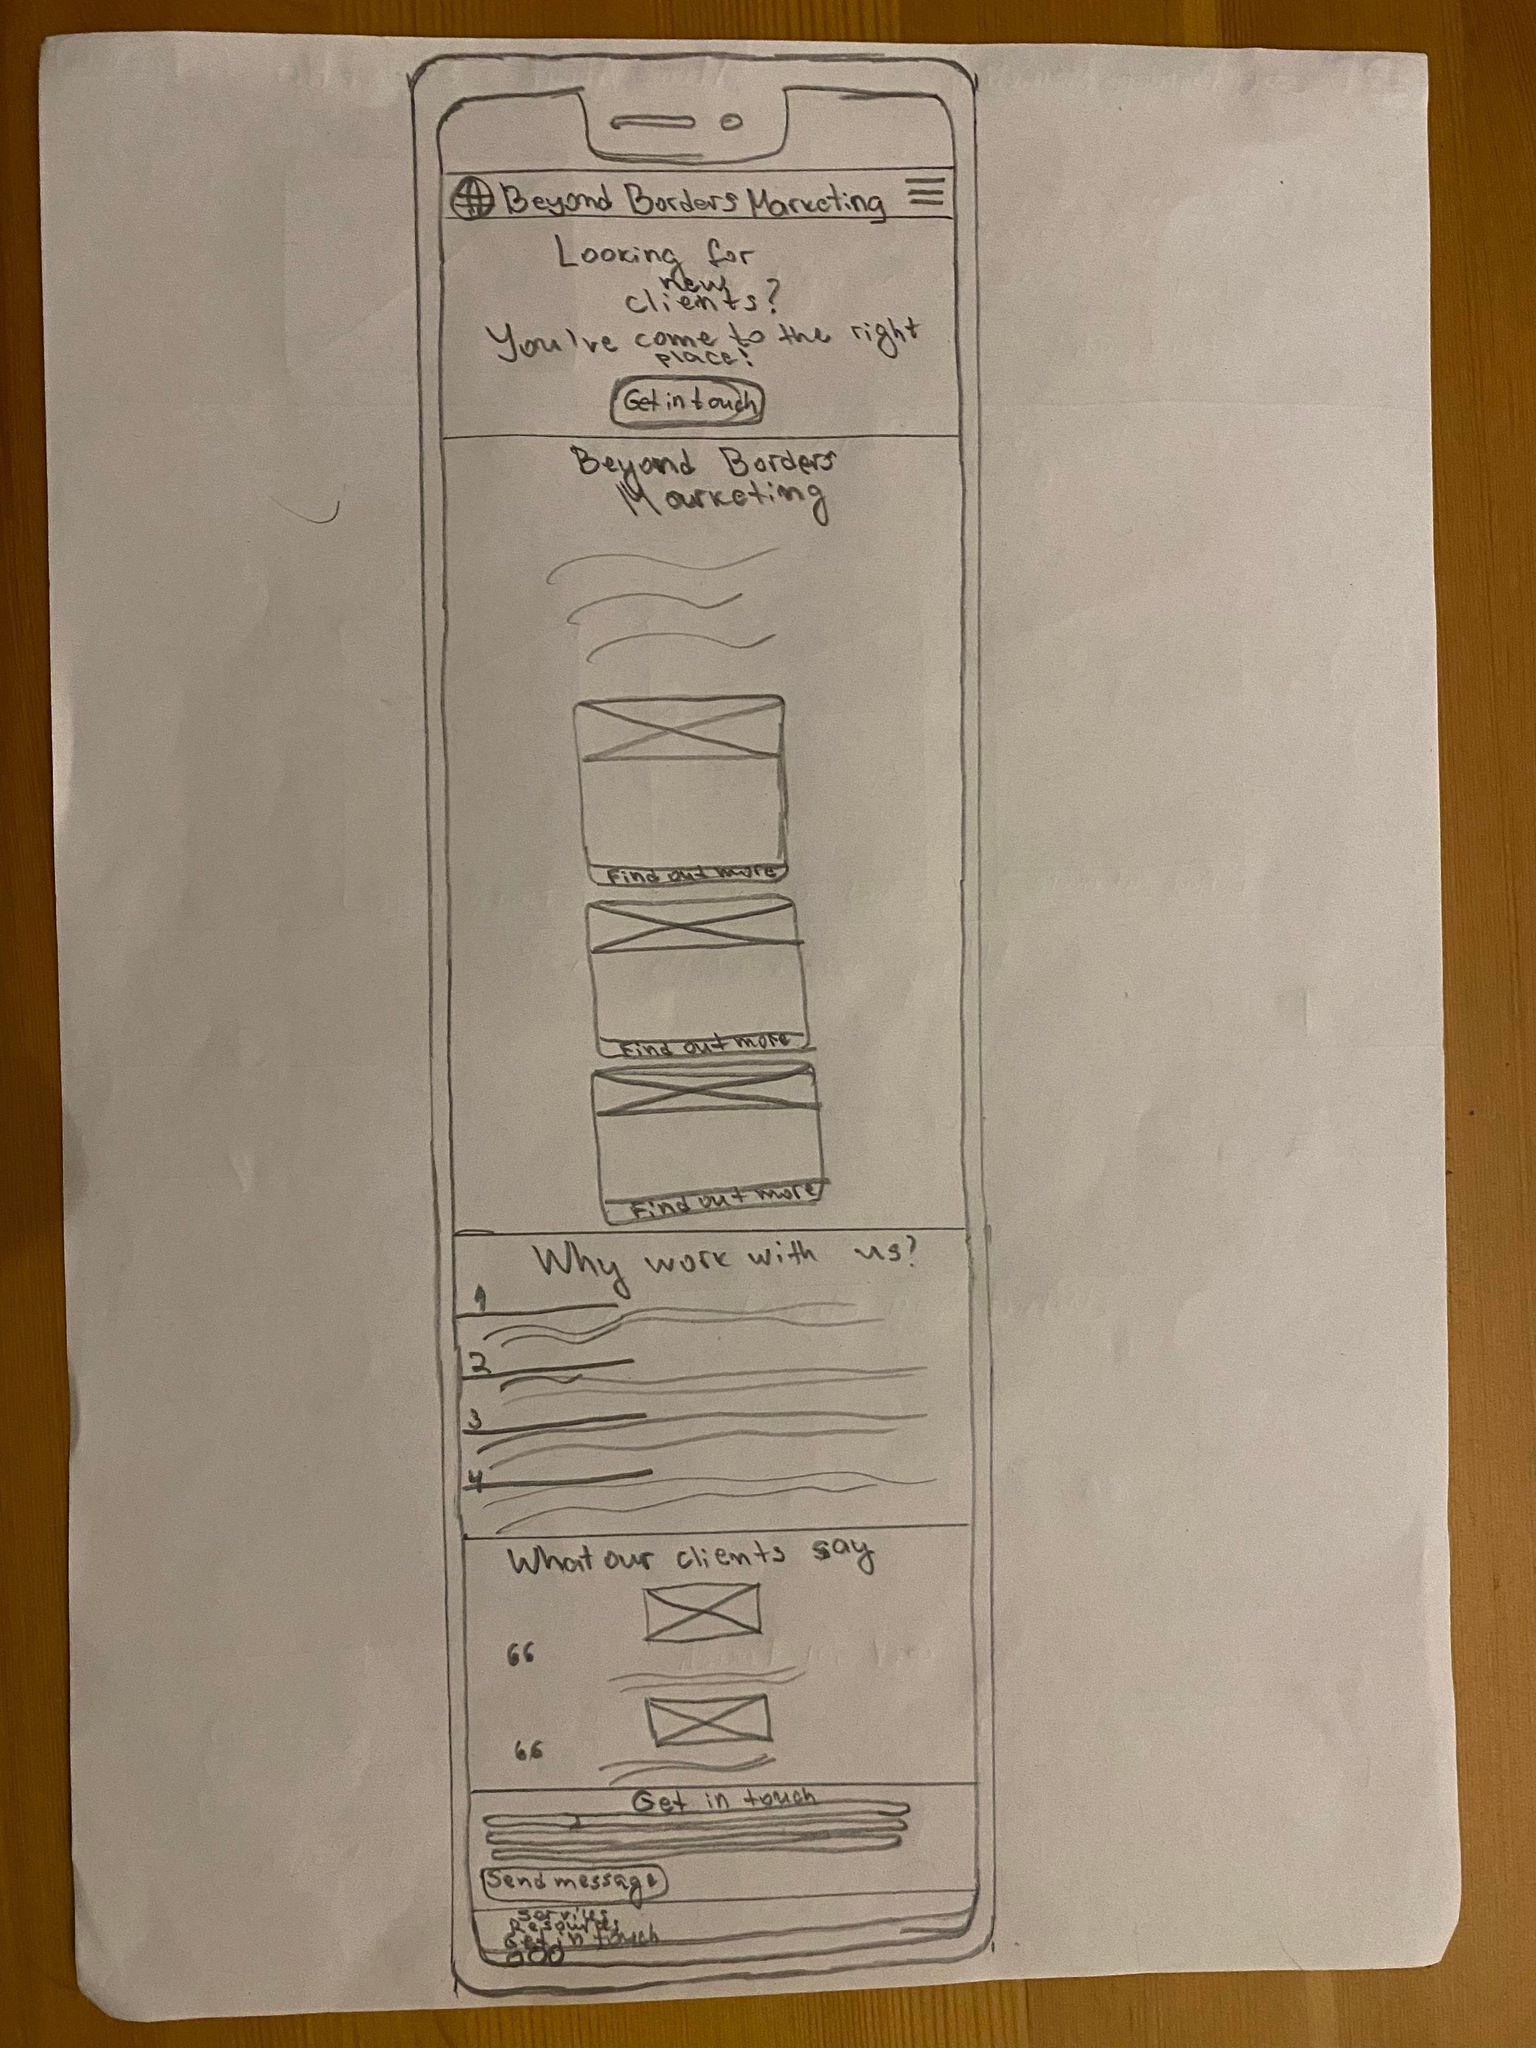 Beyond Borders Marketing
Looking for
new
clients?
You've come to the right
place!
Get in touch
Beyond Borders
Marketing
Find out more
Find out more
Find out more
Why work with us?
1
2
3
4
What our clients say
“
“
Get in touch
Send message
Services
Resources
Get in touch